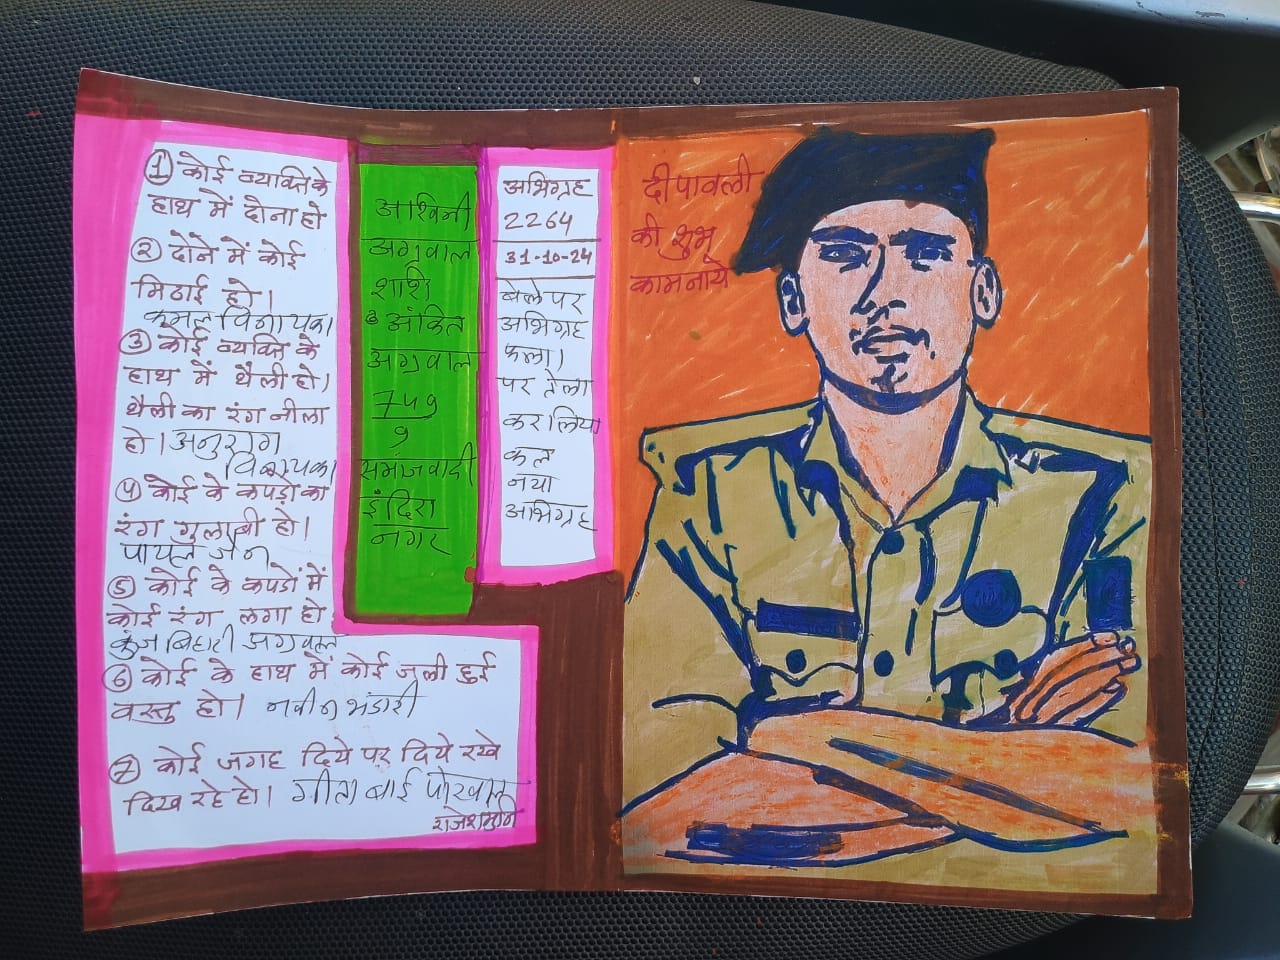 ① कोई व्यक्ति के
हाथ में दोना हो
② दोने में कोई
मिठाई हो।
कमल विनायका
③ कोई व्यक्ति के
हाथ में थैली हो।
थैली का रंग नीला
हो। अनुराग
विनायका
④ कोई के कपड़ो का
रंग गुलाबी हो।
पायल जैन
⑤ कोई के कपडों में
कोई रंग लगा हो
कुंज बिहारी अग्रवाल
⑥ कोई के हाथ में कोई जली हुई
वस्तु हो। नवीन भंडारी
⑦ कोई जगह दिये पर दिये रखे
दिख रहे हो। गीता बाई पोरवाल
राजेशमुनि
अश्विनी
अग्रवाल
शशि
अंकित
अग्रवाल
749
9
समाजवादी
इंदिरा
नगर
अभिग्रह
2264
31-10-24
बेले पर
अभिग्रह
फला।
पर तेला
कर लिया
कल
नया
अभिग्रह
दीपावली
की शुभ
कामनाये